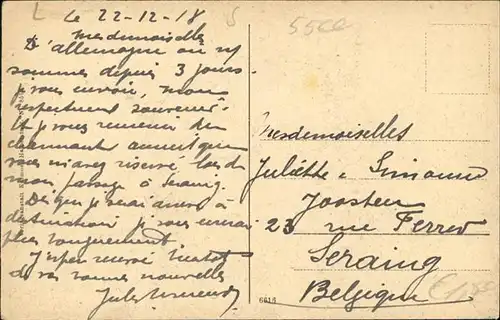 le 22-12-18
Mesdemoiselles
D'allemagne ou ns
sommes depuis 3 jours
je vous envoie, mon
respectueux souvenir.
Et je vous remercie du
charmant accueil que
vous m'avez réservé lors de
mon passage à Seraing.
Dès que je serai arrivé à
destination je vous écrirai
plus longuement
bientot
de vos bonnes nouvelles
Jules
5500
Mesdemoiselles
Juliette & Simonne
Joosten
23 rue Ferrer
Seraing
Belgique
6616